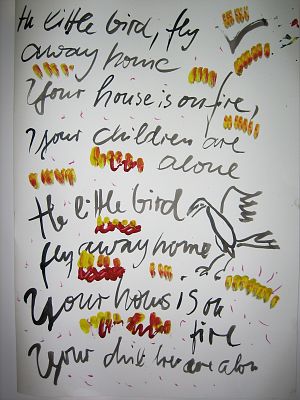 the little bird, fly
away home
Your house is on fire,
Your children are
alone
the little bird
fly away home
Your hous is on
fire
Your child are alon